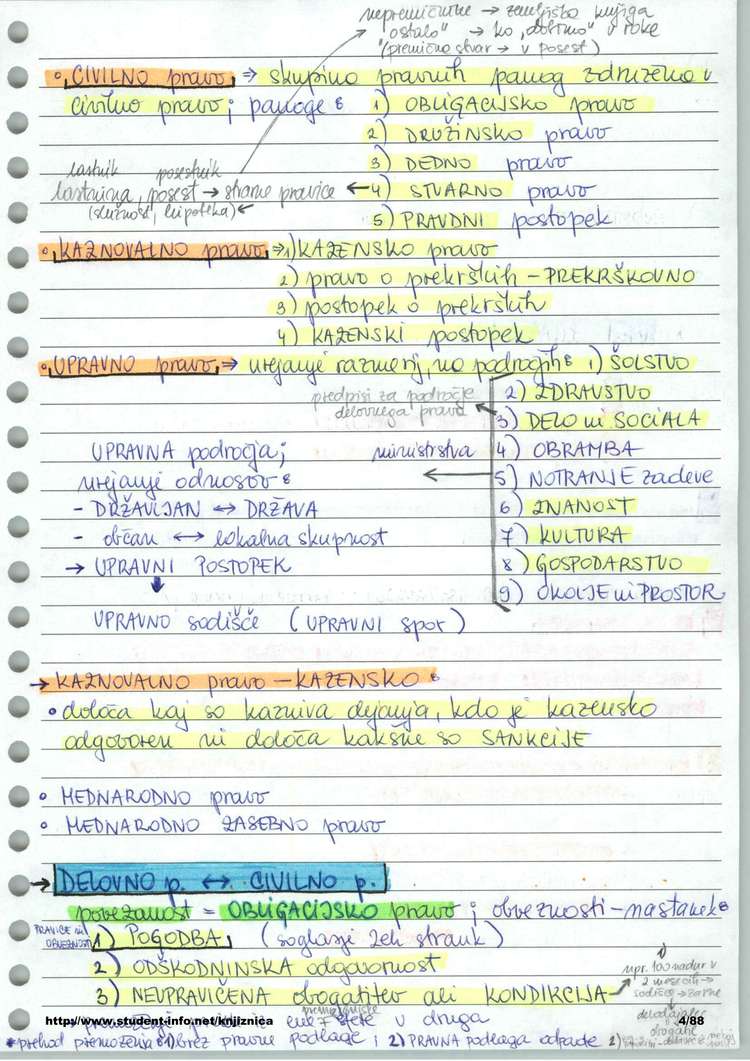 nepremičnine → zemljiška knjiga
"ostalo" → ko "dobimo" v roke
"(premična stvar → v posest)
• CIVILNO pravo ⇒ skupina pravnih panog združena v
civilno pravo; panoge:
1) OBLIGACIJSKO pravo
2) DRUŽINSKO pravo
3) DEDNO pravo
lastnik posestnik
lastnina, posest → stvarne pravice ← 4) STVARNO pravo
(služnost, hipoteka) ←
5) PRAVDNI postopek
• KAZNOVALNO pravo ⇒ 1) KAZENSKO pravo
2) pravo o prekrških - PREKRŠKOVNO
3) postopek o prekrških
4) KAZENSKI postopek
• UPRAVNO pravo ⇒ urejanje razmerij, na področjih: 1) ŠOLSTVO
2) ZDRAVSTVO
predpisi za področje
delovnega prava ← 3) DELO in SOCIALA
UPRAVNA področja; ministrstva 4) OBRAMBA
urejanje odnosov: ← 5) NOTRANJE zadeve
- DRŽAVLJAN ↔ DRŽAVA 6) ZNANOST
- občan ↔ lokalna skupnost 7) KULTURA
→ UPRAVNI POSTOPEK 8) GOSPODARSTVO
↓ 9) OKOLJE in PROSTOR
UPRAVNO sodišče (UPRAVNI spor)
→ KAZNOVALNO pravo - KAZENSKO:
• določa kaj so kazniva dejanja, kdo je kazensko
odgovoren in določa kakšne so SANKCIJE
• MEDNARODNO pravo
• MEDNARODNO ZASEBNO pravo
→ DELOVNO p. ↔ CIVILNO p.
povezanost = OBLIGACIJSKO pravo; obveznosti - nastanek:
PRAVICE in
OBVEZNOSTI 1) POGODBA, (soglasje volj strank)
2) ODŠKODNINSKA odgovornost
3) NEUPRAVIČENA obogatitev ali KONDIKCIJA →
npr. 100 nadur v
2 mesecih →
sodišče →
delodajalec
obogati
premoženje v druga
http://www.student-info.net/knjiznica
4/88
• prehod premoženja: 1) brez pravne podlage; 2) PRAVNA podlaga odpade